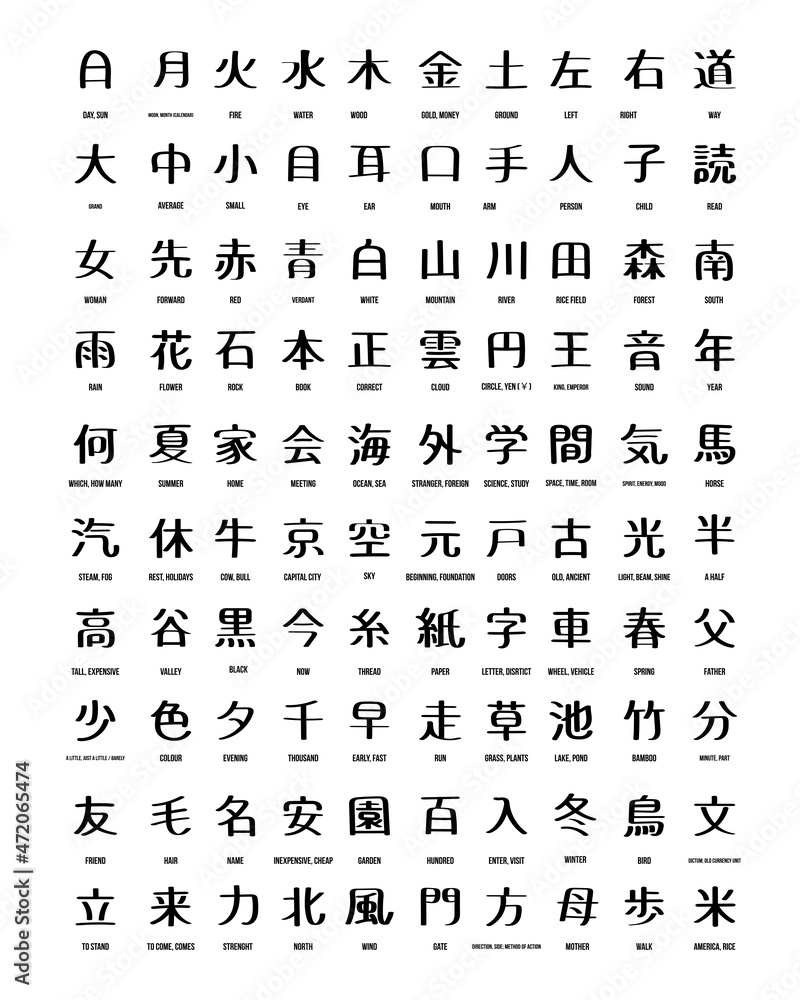 日 月 火 水 木 金 土 左 右 道
DAY, SUN MOON, MONTH (CALENDAR) FIRE WATER WOOD GOLD, MONEY GROUND LEFT RIGHT WAY
大 中 小 目 耳 口 手 人 子 読
GRAND AVERAGE SMALL EYE EAR MOUTH ARM PERSON CHILD READ
女 先 赤 青 白 山 川 田 森 南
WOMAN FORWARD RED VERDANT WHITE MOUNTAIN RIVER RICE FIELD FOREST SOUTH
雨 花 石 本 正 雲 円 王 音 年
RAIN FLOWER ROCK BOOK CORRECT CLOUD CIRCLE, YEN (￥) KING, EMPEROR SOUND YEAR
何 夏 家 会 海 外 学 間 気 馬
WHICH, HOW MANY SUMMER HOME MEETING OCEAN, SEA STRANGER, FOREIGN SCIENCE, STUDY SPACE, TIME, ROOM SPIRIT, ENERGY, MOOD HORSE
汽 休 牛 京 空 元 戸 古 光 半
STEAM, FOG REST, HOLIDAYS COW, BULL CAPITAL CITY SKY BEGINNING, FOUNDATION DOORS OLD, ANCIENT LIGHT, BEAM, SHINE A HALF
高 谷 黒 今 糸 紙 字 車 春 父
TALL, EXPENSIVE VALLEY BLACK NOW THREAD PAPER LETTER, DISRTICT WHEEL, VEHICLE SPRING FATHER
少 色 夕 千 早 走 草 池 竹 分
A LITTLE, JUST A LITTLE / BARELY COLOUR EVENING THOUSAND EARLY, FAST RUN GRASS, PLANTS LAKE, POND BAMBOO MINUTE, PART
友 毛 名 安 園 百 入 冬 鳥 文
FRIEND HAIR NAME INEXPENSIVE, CHEAP GARDEN HUNDRED ENTER, VISIT WINTER BIRD DICTUM; OLD CURRENCY UNIT
立 来 力 北 風 門 方 母 歩 米
TO STAND TO COME, COMES STRENGHT NORTH WIND GATE DIRECTION, SIDE; METHOD OF ACTION MOTHER WALK AMERICA, RICE
Adobe Stock | #472065474